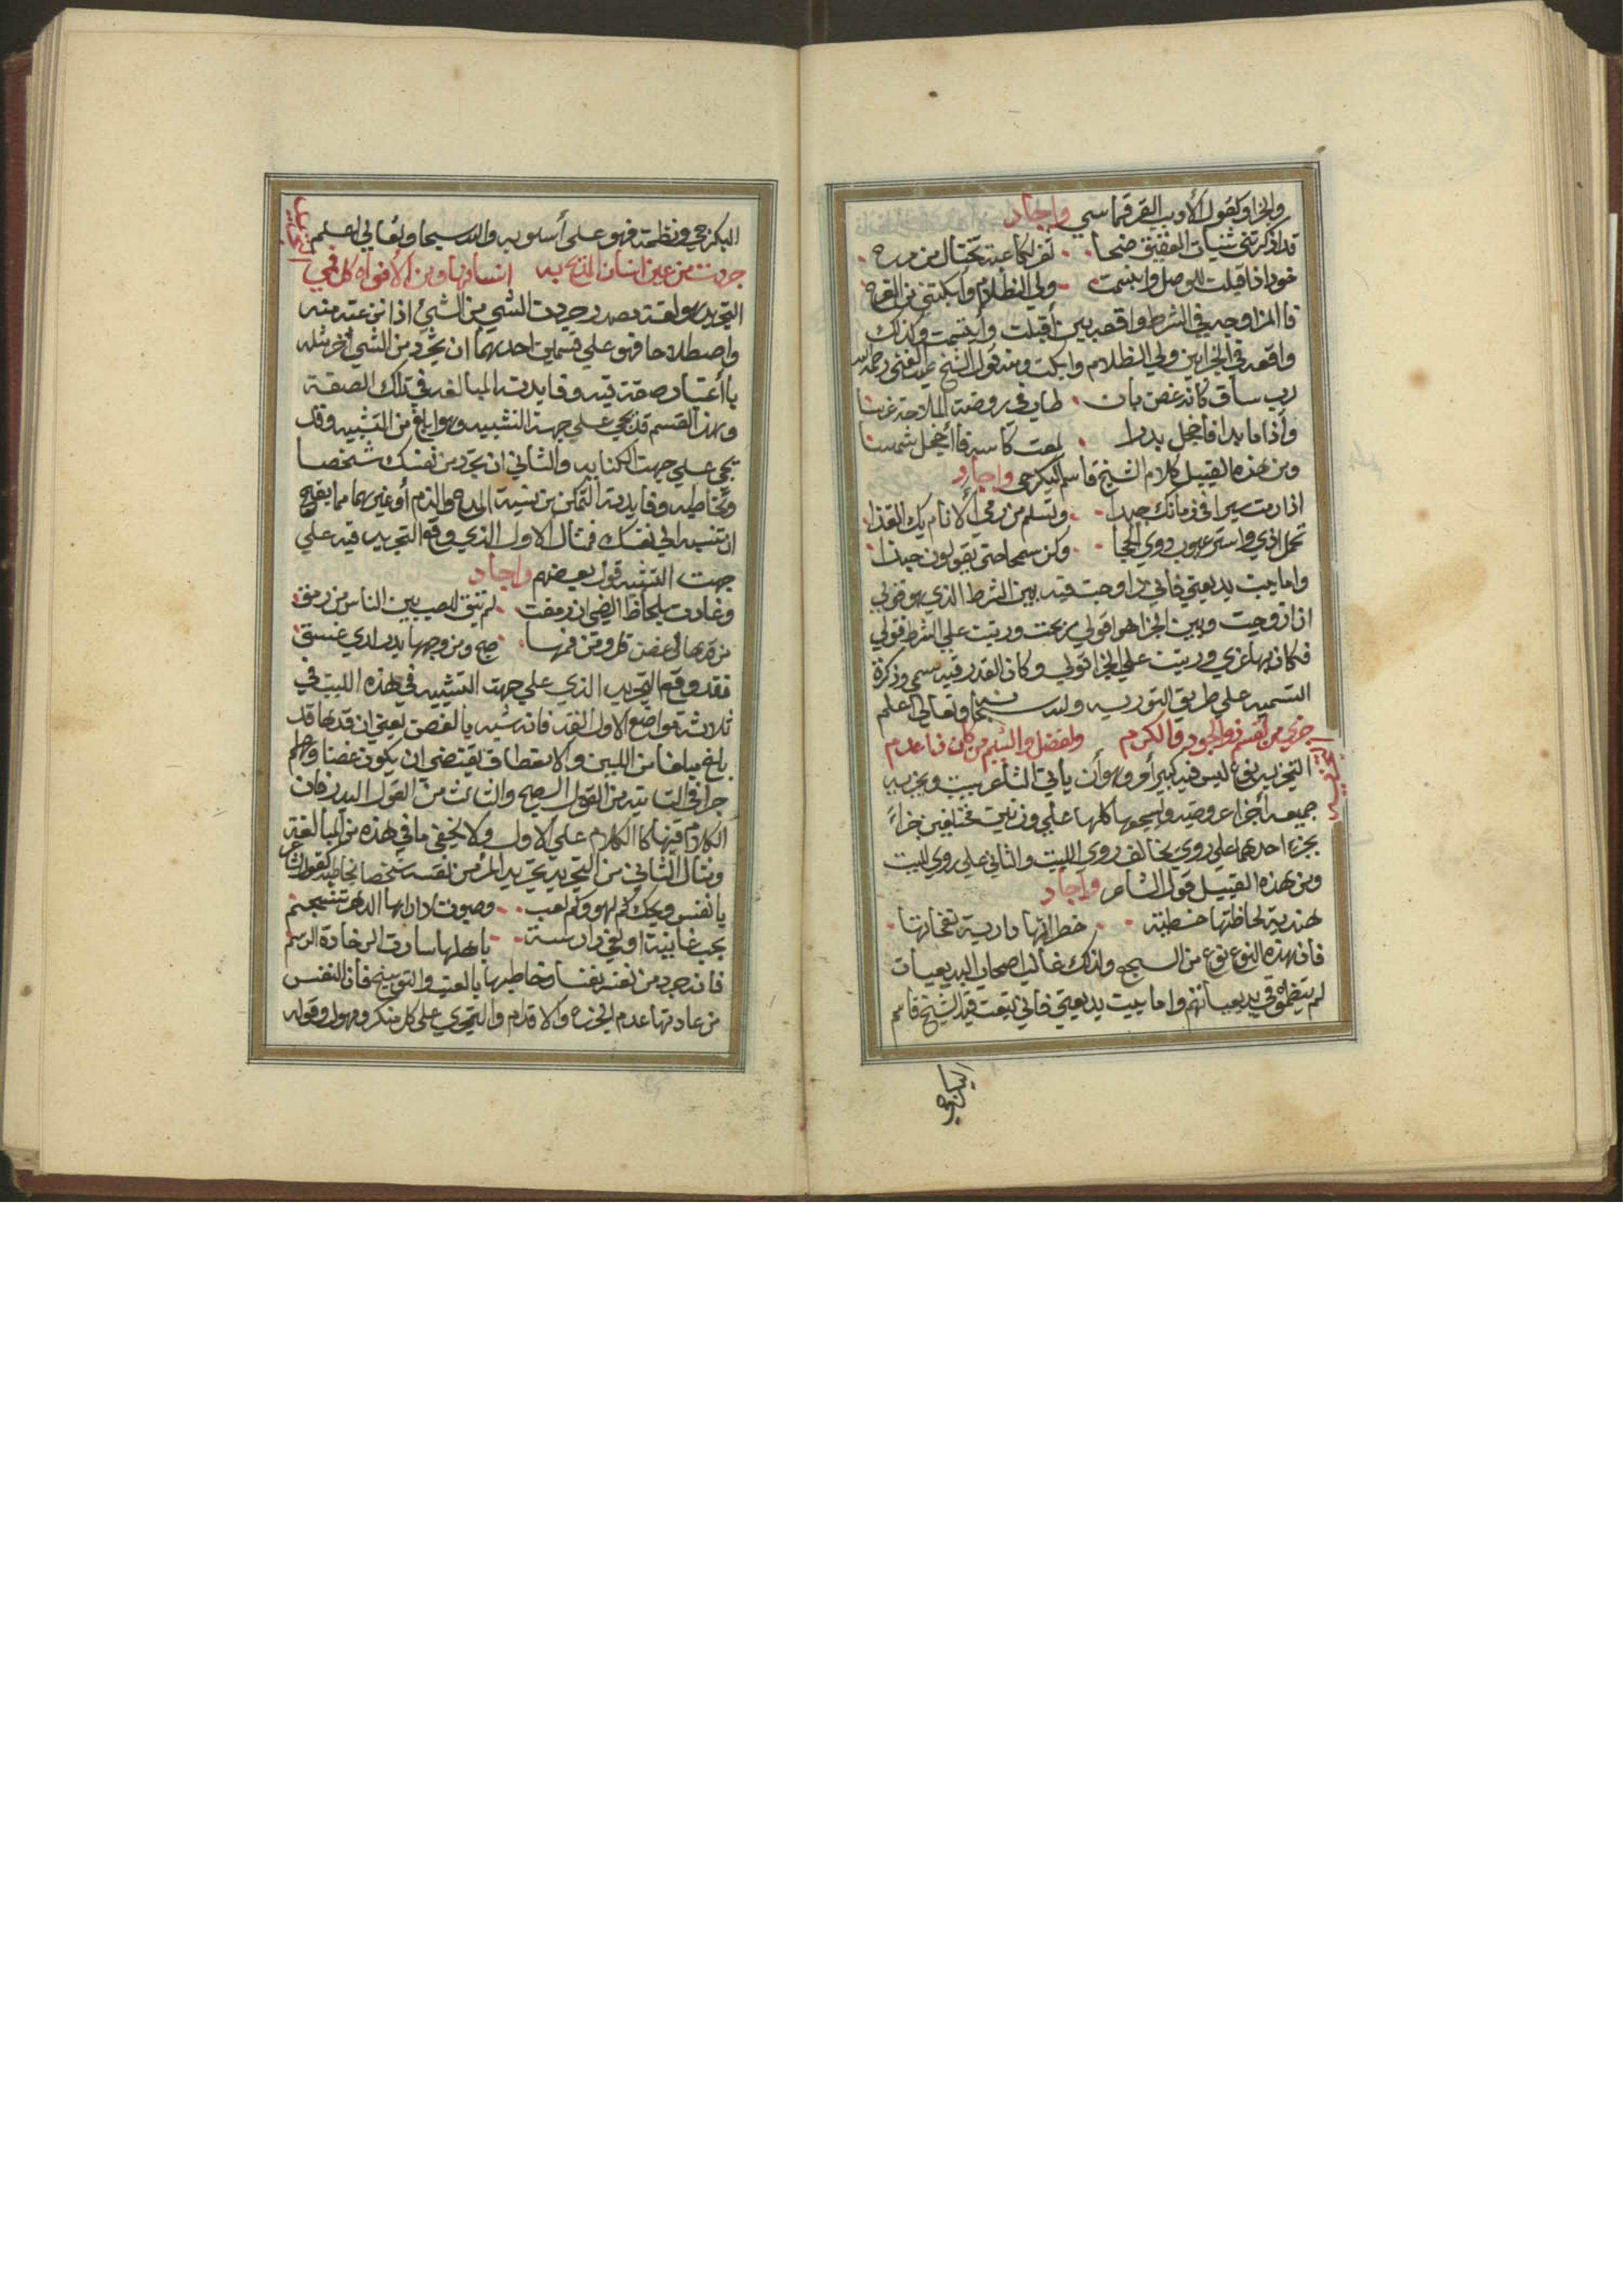 والجزا وكقول الأديب القرقماسي واجاد
قد اذكرتني ثنيات العقيق ضحا لغز كاعبة تختال من مرح
خود اذا اقبلت للوصل وابتسمت ولي الظلام وابكتني من الفرح
فاالمزاوجه في الشرط واقعه بين أقبلت وأبتسمت وكذلك
واقعه في الجزا بين ولي الظلام وابكت ومنه قول الشيخ عبد الغني رحمه الله
رب ساق كانه غصن بان طاب في روضة الملاحة غرسا
وأذا ما بدا فاخجل بدرا لمعت كاسه فاأخجل شمسا
ومن هذه القبيل كلام الشيخ قاسم البكرجي واجاد
اذا رمت سيرا في زمانك جيدا وتسلم من رمي الأنام بك القذا
تحمل اذي واستر عيوب ذوي الحجا وكن سمحا حتى يقولون حبذا
واما بيت بديعيتي فاني زاوجت فيه بين الشرط الذي هو قولي
ان ازوجت وبين الجزا هو اقولي مزجت ورتبت علي الشرط قولي
فكان بها عزي ورتبت علي الجزا قولي وكان القدر فيه سمي وذكرة
التسميه علي طريق التوريه والله سبحانه وتعالى اعلم
جزي من لقسم ذو الجود والكرم ولفضل والشيم من كان فاعدم
التجزيه
التجزيه نوع ليس فيه كبير أمر وهو أن يأتي الشاعر ببيت ويجزيه
جميعه أجزا عروضيه ويسجعها كلها علي وزنين مختلفين جزاءً
بجزء احدهما علي روي يخالف روي البيت والثاني علي روي البيت
ومن هذه القبيل قول الشاعر واجاد
هندية لحاظتها خطبة خطراتها دارية نفحاتها
فان هذه النوع نوع من السجع ولذلك غالب اصحاب البديعيات
لم ينظموه في بديعياتهم واما بيت بديعيتي فاني تبعت فيه الشيخ قاسم
البكرجي
البكرجي ونظمته فهو على أسلوبه والله سبحا وتعالي اعلم
التجريد
جردت من عين انسان المديح به انسانها ومن الأفواه كل فمي
التجريد هو لغة مصدر جردت الشي من الشيء اذا نزعته منه
واصطلاحا فهو علي قسمين احدهما ان يجرد من الشي أخر مثله
باأعتبار صفة فيه وفايدته المبالغه في تلك الصفة
وهذ القسم قد يجي علي جهة التشبيه وهو ابلغ من التشبيه وقد
يجي علي جهت الكنايه والثاني ان تجرد من نفسك شخصا
وتخاطبه وفايدته التمكن من نسبة المدح والذم أو غيرهما مما يقبح
ان تنسبه الي نفسك فمثال الاول الذي وقع التجريد فيه علي
جهت التشبيه قول بعضهم واجاد
وغادت بلحاظ الضي ان رمقت لم تبق للصب بين الناس من رمق
من قدها لي غصن قل ومن فمها صبح ومن وجهها بدر لدي غسق
فقد وقع التجريد الذي علي جهت التشبيه في هذه البيت في
ثلاث مواضع الاول القد فانه شبه بالغصن يعني ان قدها قد
بلغ مبلغا من اللين والانعطاف يقتضي ان يكون غصنا وهلم
جرا في الثانيه من القول الصبح والثالث من القول البدر فان
الكلام فيها كاالكلام علي الاول ولا يخفي ما في هذه من المبالغة
ومثال الثاني من التجريد تجريد المرء من نفسه شخصا يخاطبه كقول الشاعر
يا نفس ويحك كم لهو وكم لعب
فانه جرد من نفسه نفسا وخاطبها بالعيب والتوبيخ فان النفس
من عادتها عدم الخزه والاقدام والتجري على كل منكر ومهول وقوله